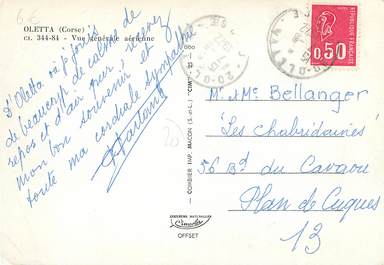 62
OLETTA (Corse)
CI. 344-84 - Vue générale aérienne
D'Oletta où je jouis
de beaucoup de calme, de
repos et d'air pur, recevez
mon bon souvenir et
toute ma cordiale sympathie
COMBIER IMP. MACON (S.-et-L.) "CIM"
COULEURS NATURELLES
Cimcolor
OFFSET
20
0,50
Mr et Mme Bellanger
"Les Chabridaines"
56 Bd du Cavaou
Plan de Cuques
13